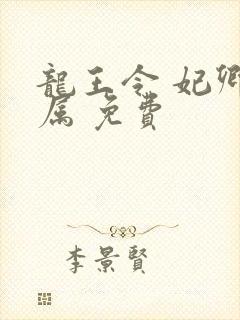 龍王令 妃卿
属 免費
李景賢